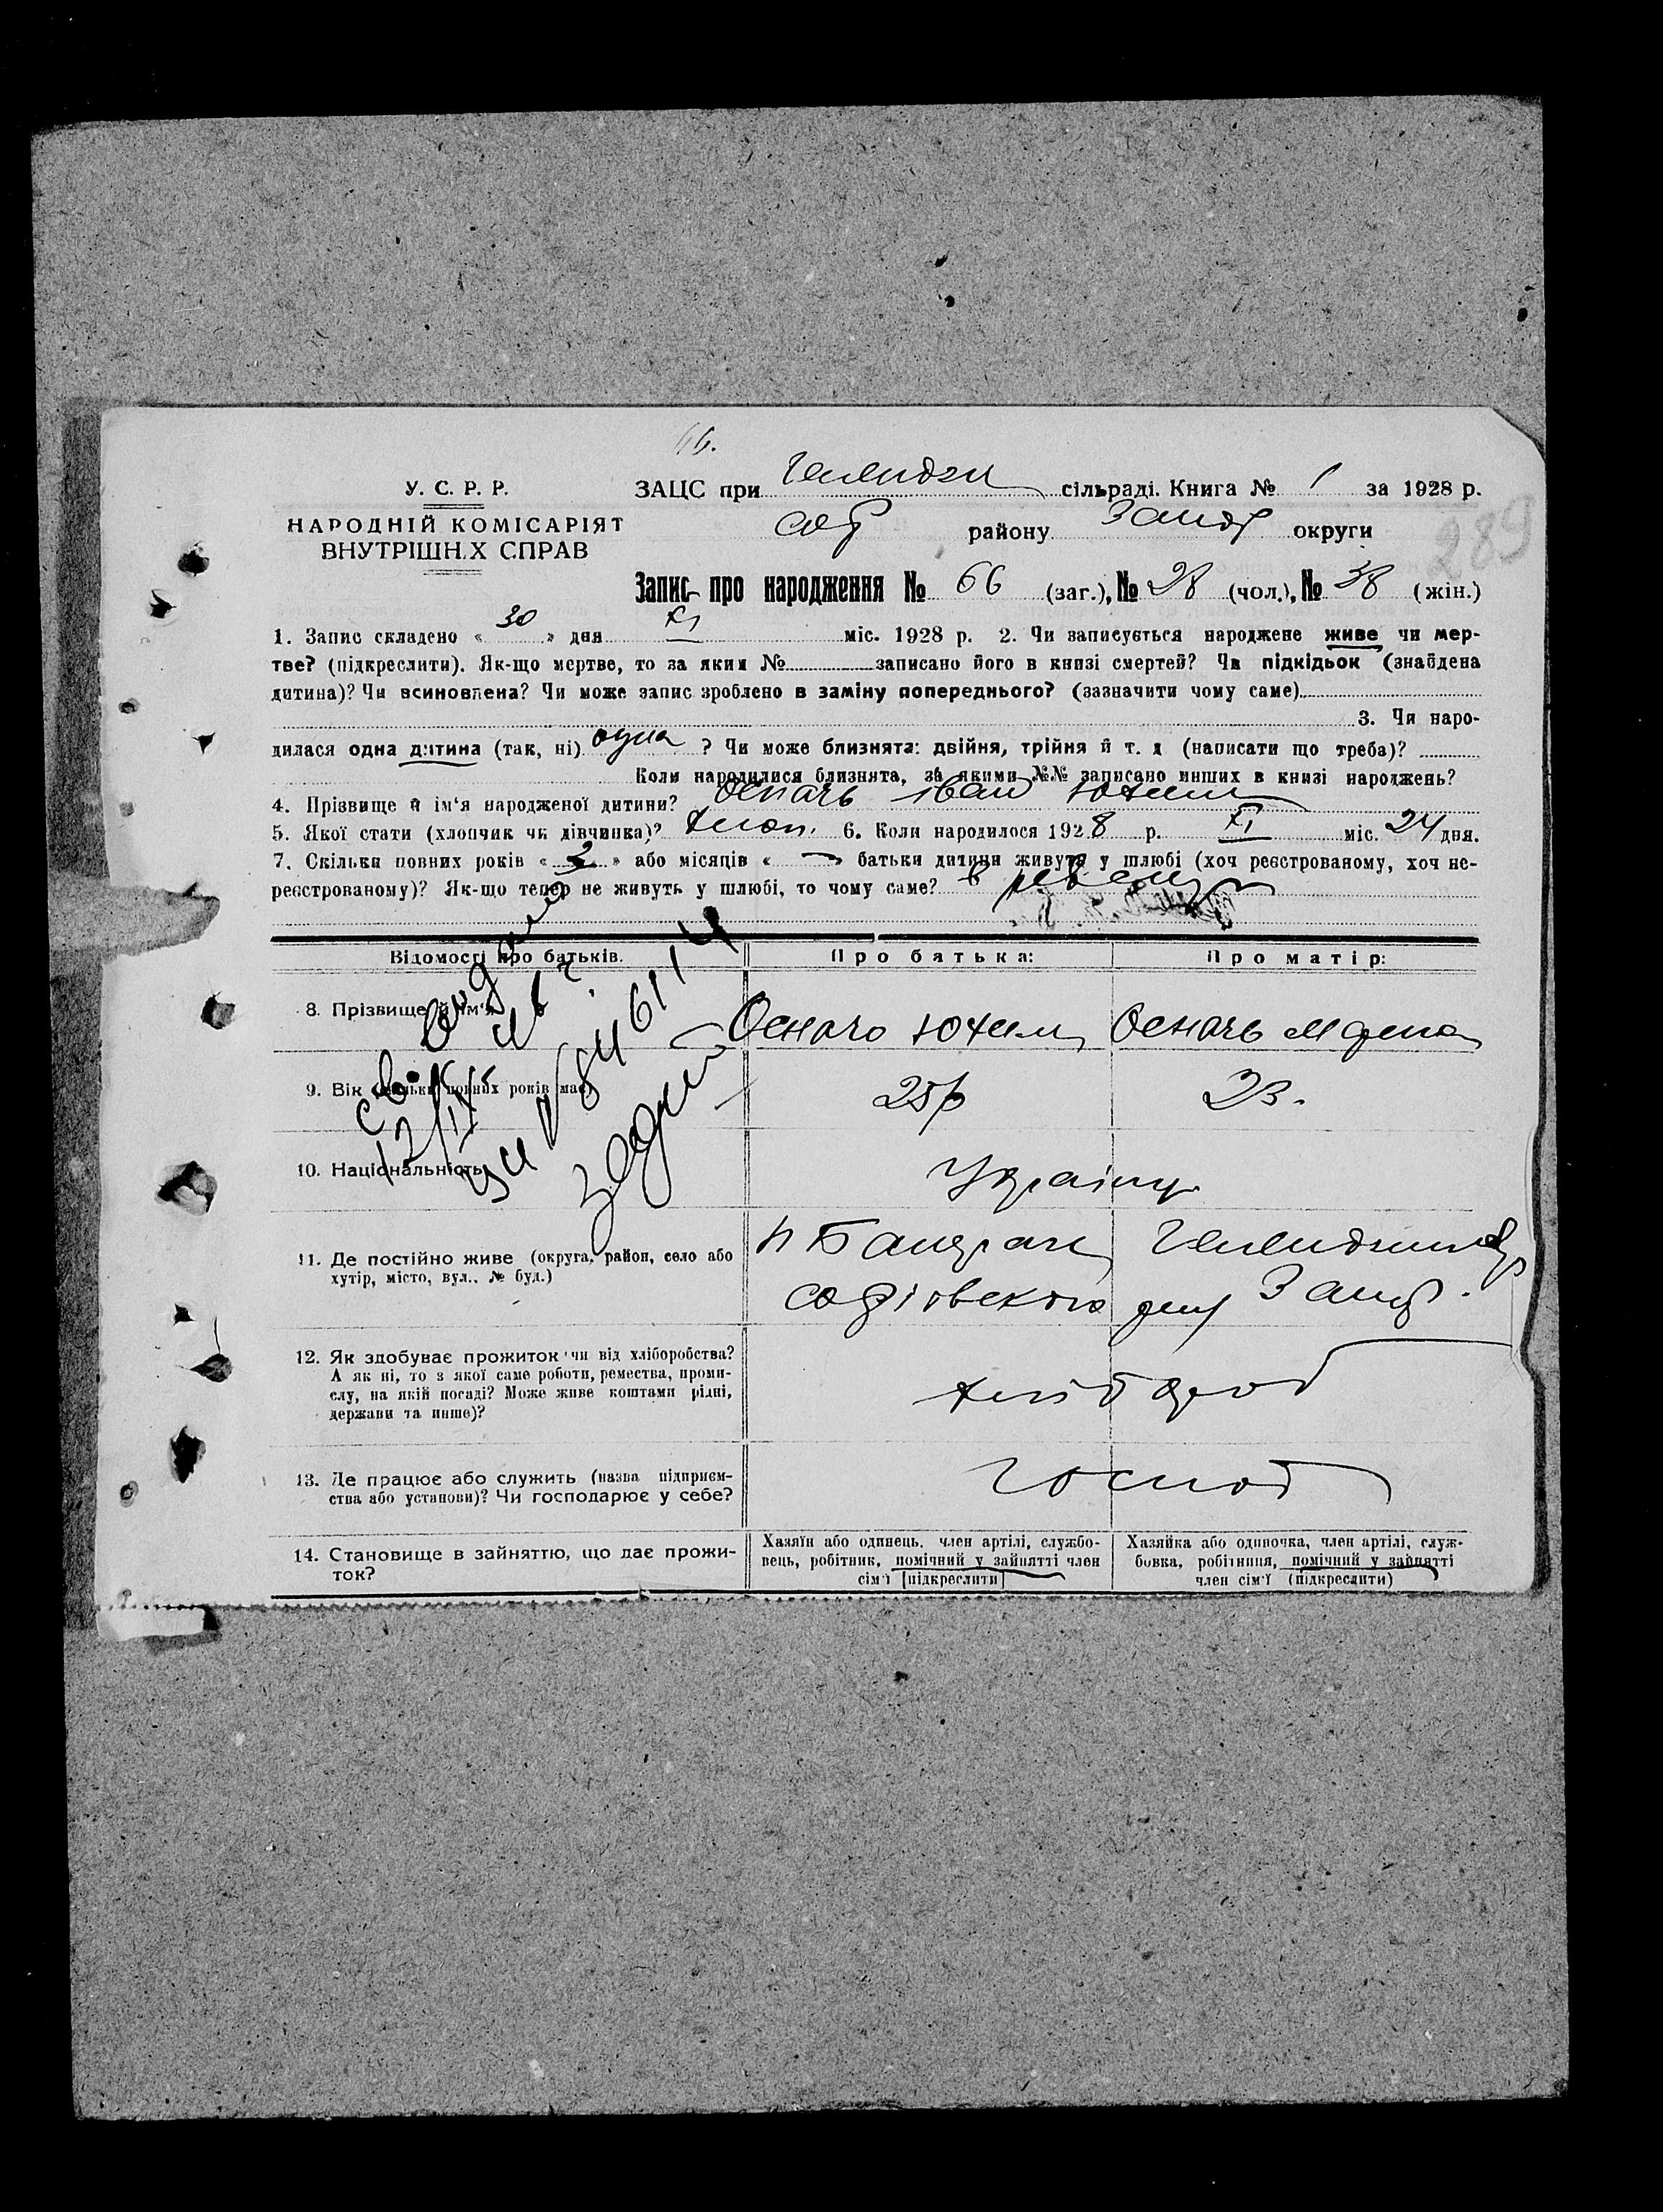 66.
У. С. Р. Р.
НАРОДНІЙ КОМІСАРІЯТ
ВНУТРІШН.Х СПРАВ
ЗАЦС при сільраді. Книга № 1 за 1928 р.
Соф району Запор округи
289
Запис про народження № 66 (заг.), № 28 (чол.), № 38 (жін.)
1. Запис складено « 30 » дня XI міс. 1928 р. 2. Чи записується народжене живе чи мер-
тве? (підкреслити). Як-що мертве, то за яким № записано його в книзі смертей? Чи підкідьок (знайдена
дитина)? Чи всиновлена? Чи може запис зроблено в заміну попереднього? (зазначити чому саме)
3. Чи наро-
дилася одна дитина (так, ні) одна ? Чи може близнята: двійня, трійня й т. д (написати що треба)?
Коли народилися близнята, за якими №№ записано инших в книзі народжень?
4. Прізвище й ім‘я народженої дитини? Осначь Іван Юхим
5. Якої стати (хлопчик чи дівчинка)? хлоп. 6. Коли народилося 1928 р. XI міс. 24 дня.
7. Скільки повних років « » або місяців « — » батьки дитини живуть у шлюбі (хоч реєстрованому, хоч не-
реєстрованому)? Як-що тепер не живуть у шлюбі, то чому саме? в
Відомості про батьків. Про батька: Про матір:
8. Прізвище й ім‘я Осначь Юхим Осначь Марина
9. Вік (скільки повних років має) 25р 23.
10. Національність Україну
11. Де постійно живе (округа, район, село або
хутір, місто, вул., № буд.)
Софіовского Запор.
12. Як здобуває прожиток чи від хліборобства?
А як ні, то з якої саме роботи, ремества, проми-
слу, на якій посаді? Може живе коштами рідні,
держави та инше)?
хлібороб
13. Де працює або служить (назва підприєм-
ства або установи)? Чи господарює у себе?
господ
14. Становище в зайняттю, що дає прожи-
ток?
Хазяїн або одинець, член артілі, службо-
вець, робітник, помічний у зайнятті член
сім‘ї [підкреслити]
Хазяйка або одиночка, член артілі, служ-
бовка, робітниця, помічний у зайнятті
член сім‘ї (підкреслити)